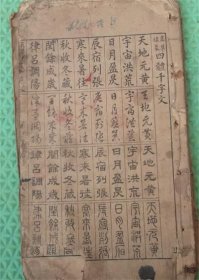 四體千字文
天地元黃 天地元黃 天地元黃 天地元黃
宇宙洪荒 宇宙洪荒 宇宙洪荒 宇宙洪荒
日月盈昃 日月盈昃 日月盈昃 日月盈昃
辰宿列張 辰宿列張 辰宿列張 辰宿列張
寒來暑往 寒來暑往 寒來暑往 寒來暑往
秋收冬藏 秋收冬藏 秋收冬藏 秋收冬藏
閏餘成歲 閏餘成歲 閏餘成歲 閏餘成歲
律呂調陽 律呂調陽 律呂調陽 律呂調陽